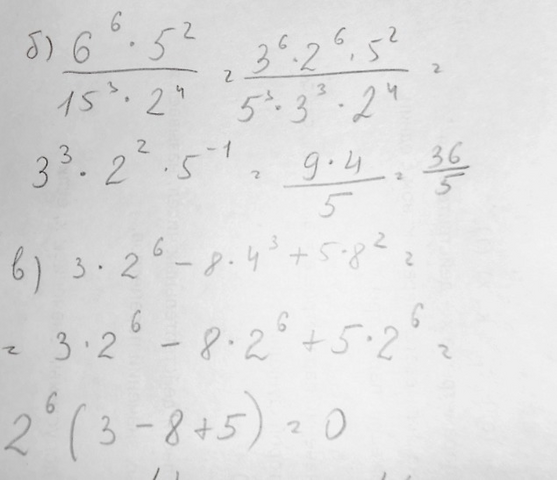 б) 6^6 · 5^2 / 15^3 · 2^4 = 3^6 · 2^6 · 5^2 / 5^3 · 3^3 · 2^4 =
3^3 · 2^2 · 5^-1 = 9 · 4 / 5 = 36 / 5
в) 3 · 2^6 - 8 · 4^3 + 5 · 8^2 =
= 3 · 2^6 - 8 · 2^6 + 5 · 2^6 =
2^6 (3 - 8 + 5) = 0